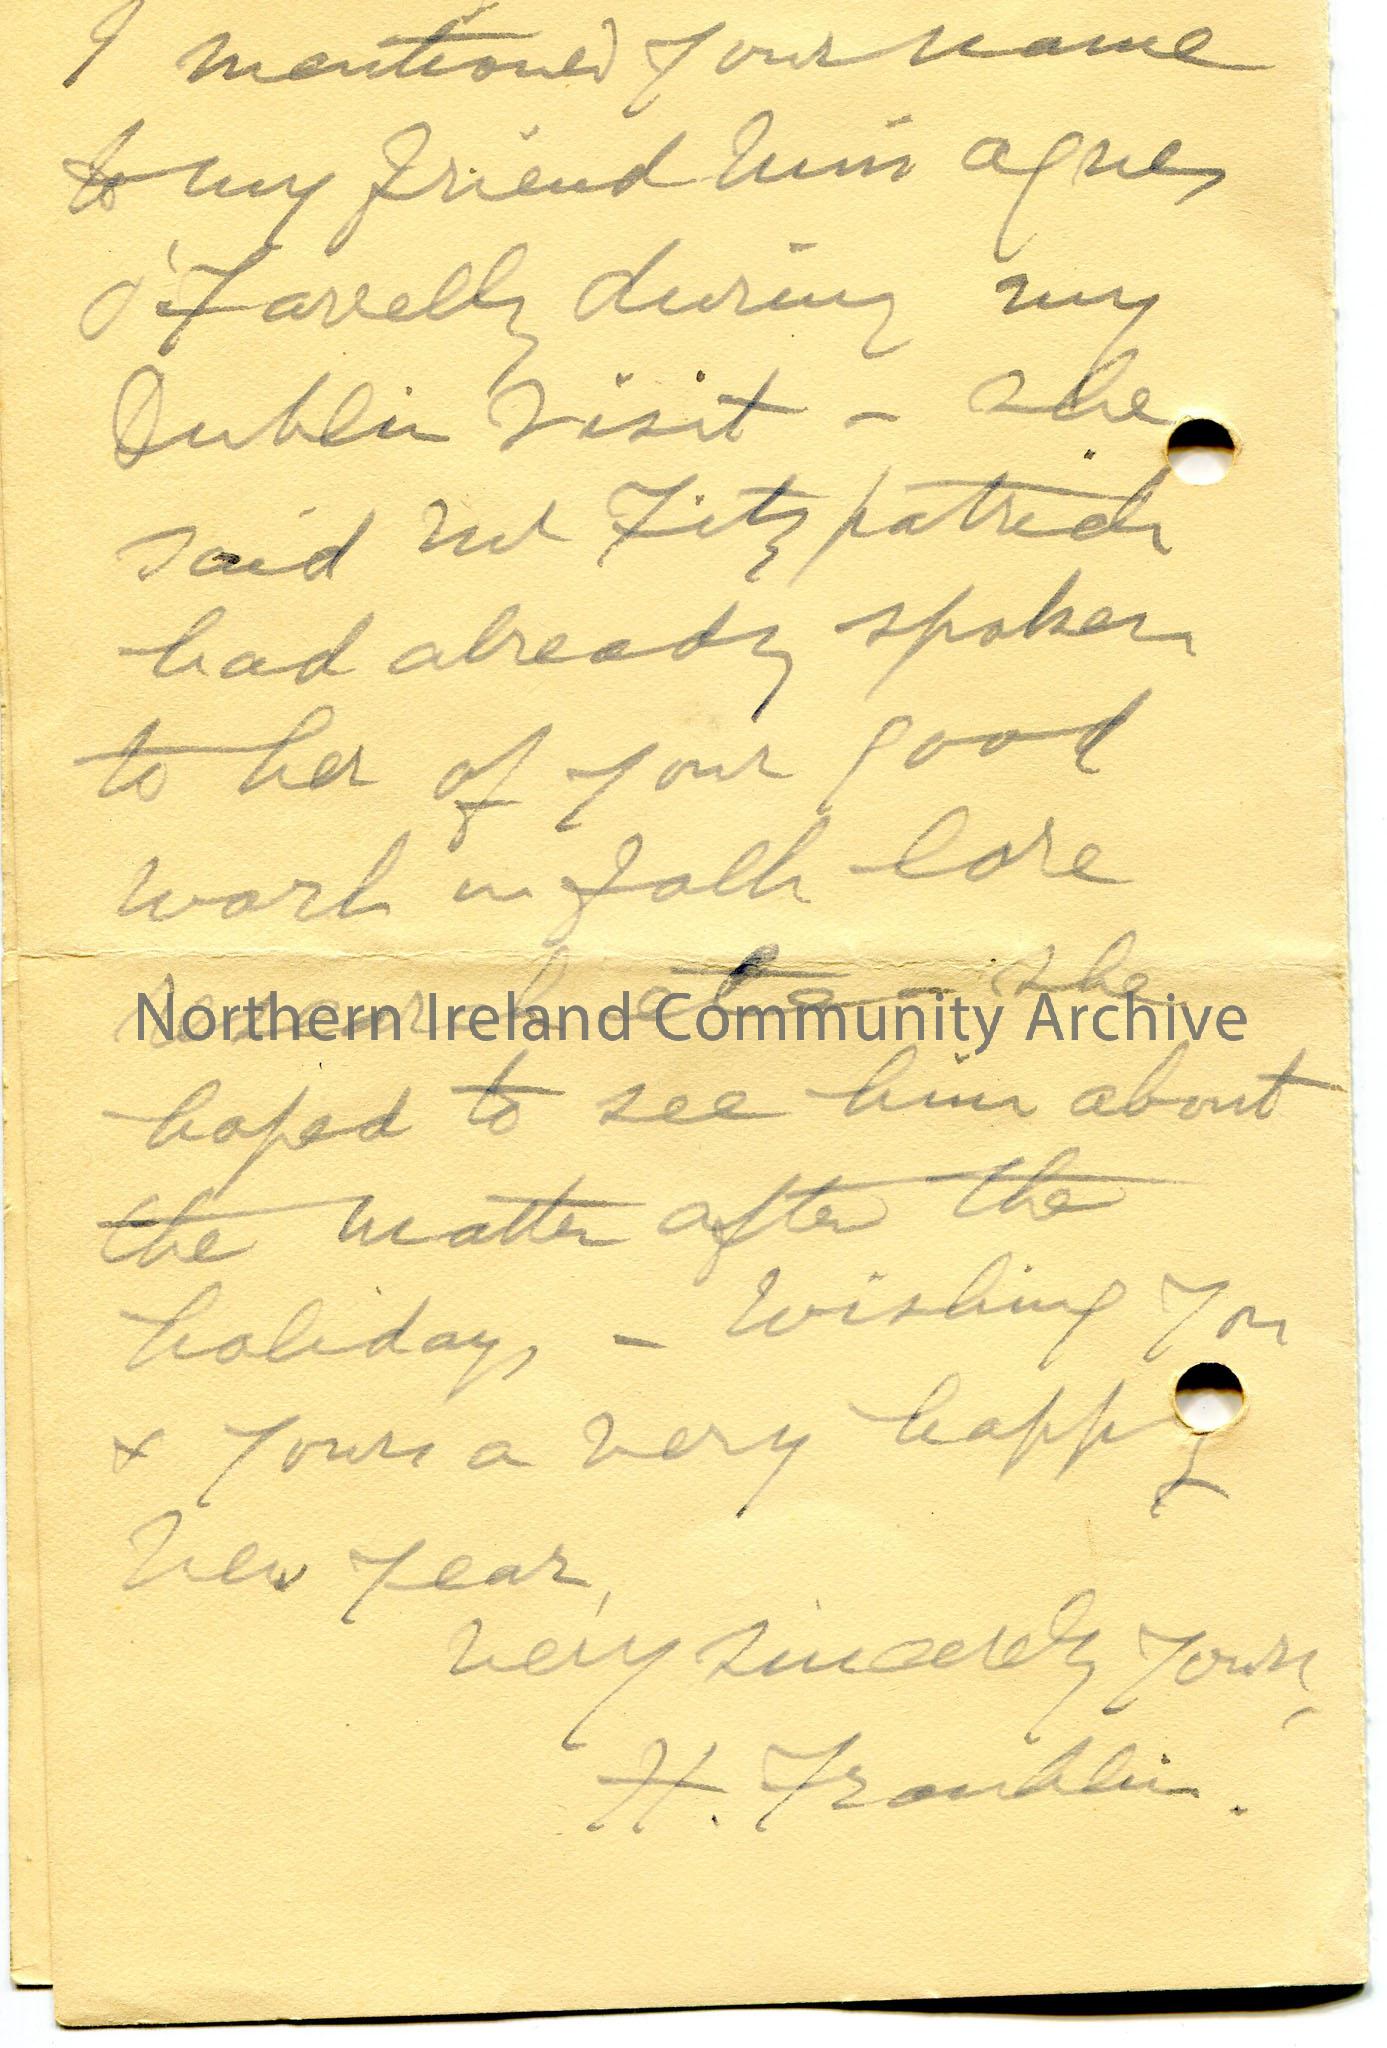 I mentioned your name
to my friend Miss Agnes
O'Farrelly during my
Dublin visit – she
said Mr Fitzpatrick
had already spoken
to her of your good
work in folk lore
research etc – she
Northern Ireland Community Archive
hoped to see him about
the matter after the
holidays – Wishing you
& yours a very happy
New Year,
Very sincerely yours,
H. Franklin.